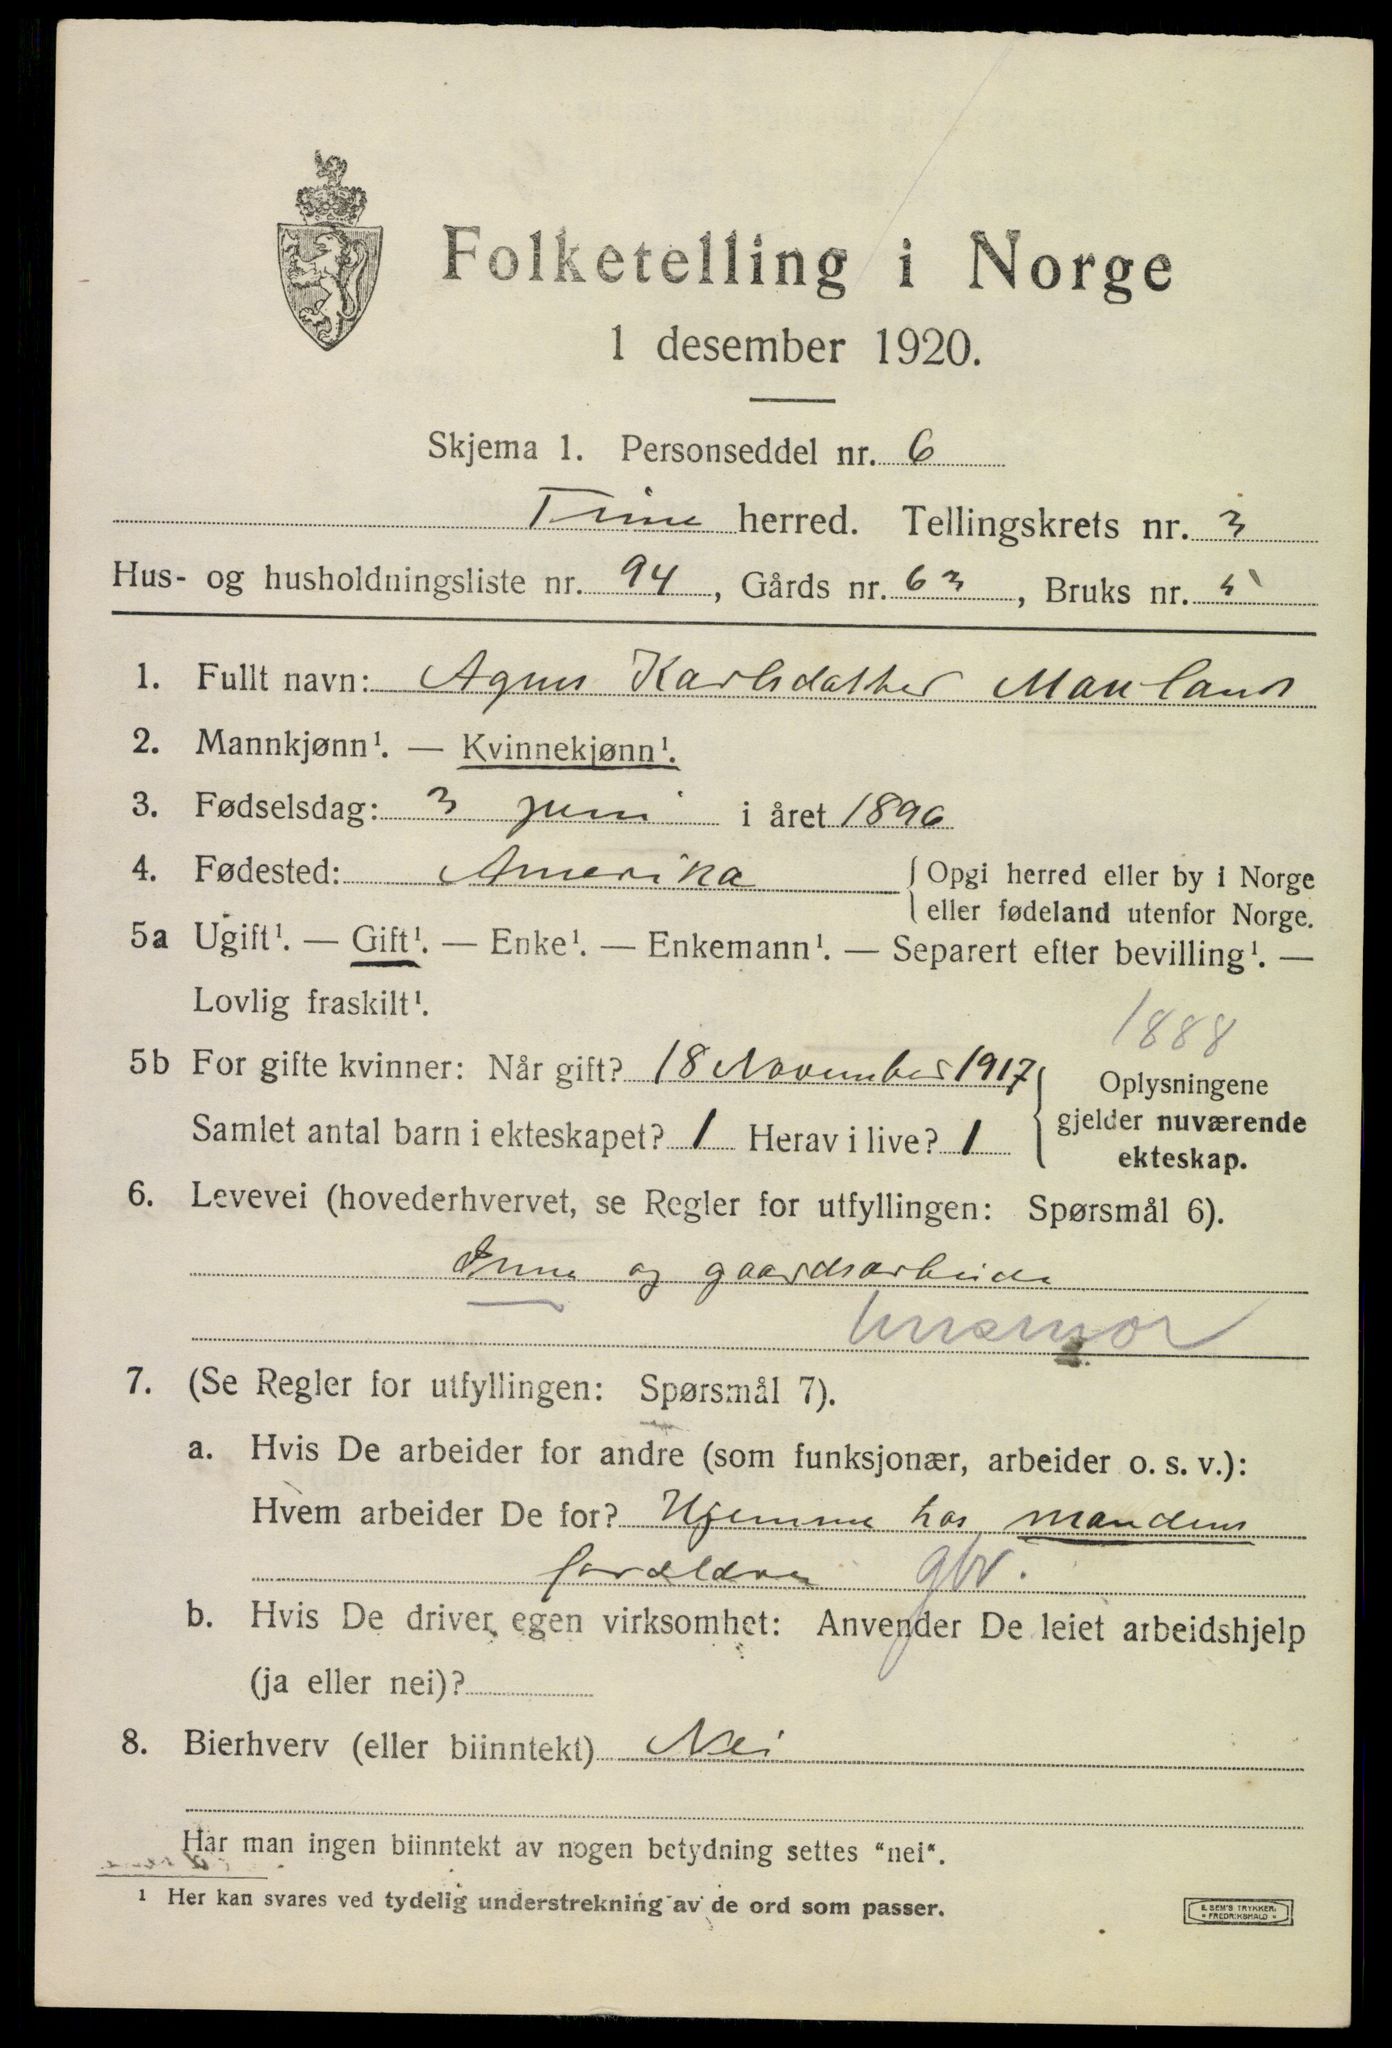 Folketelling i Norge
1 desember 1920.
Skjema 1. Personseddel nr. 6
Time herred. Tellingskrets nr. 3
Hus- og husholdningsliste nr. 94, Gårds nr. 63, Bruks nr. 5
1. Fullt navn: Agnes Karlsdatter Mauland
2. Mannkjønn¹. — Kvinnekjønn¹.
3. Fødselsdag: 3 juni i året 1896
4. Fødested: Amerika { Opgi herred eller by i Norge
eller fødeland utenfor Norge.
5a Ugift¹. — Gift¹. — Enke¹. — Enkemann¹. — Separert efter bevilling¹. —
Lovlig fraskilt¹.
1888
5b For gifte kvinner: Når gift? 18 November 1917
Samlet antal barn i ekteskapet? 1 Herav i live? 1
Oplysningene
gjelder nuværende
ekteskap.
6. Levevei (hovederhvervet, se Regler for utfyllingen: Spørsmål 6).
Inne og gaardsarbeide
husmor
7. (Se Regler for utfyllingen: Spørsmål 7).
a. Hvis De arbeider for andre (som funksjonær, arbeider o. s. v.):
Hvem arbeider De for? Hjemme hos mandens
foreldre gbr.
b. Hvis De driver egen virksomhet: Anvender De leiet arbeidshjelp
(ja eller nei)?
8. Bierhverv (eller biinntekt) Nei
Har man ingen biinntekt av nogen betydning settes "nei".
¹ Her kan svares ved tydelig understrekning av de ord som passer.
E. SEM'S TRYKKERI
FREDRIKSHALD